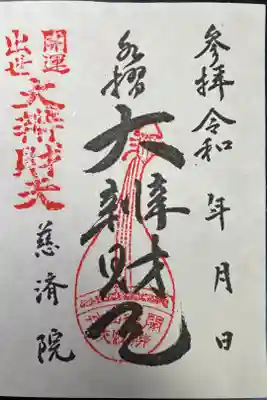 参拝 令和 年 月 日
水摺
大辨財天
開運
出世
大辨財天
慈済院